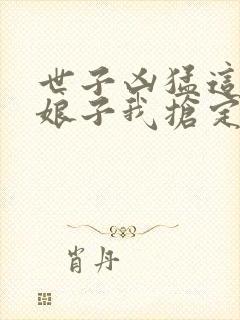 世子凶猛這
娘子我搶定
肖丹